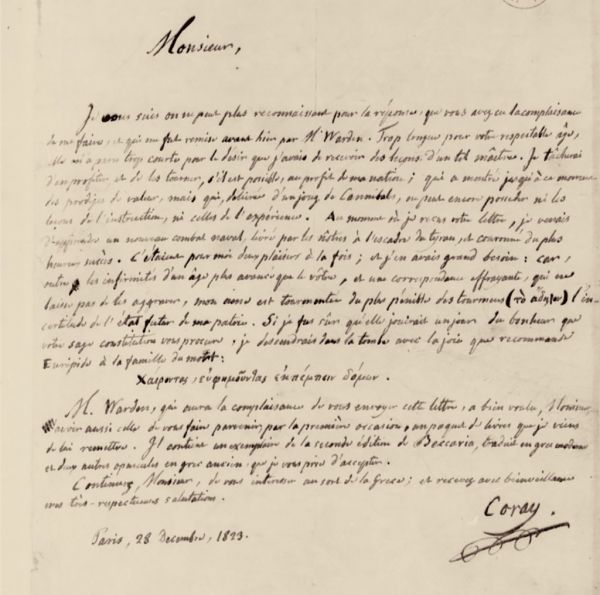 Monsieur,
Je vous suis on ne peut plus reconnaissant pour la réponse, que vous avez eu la complaisance
de me faire, et qui me fut remise avant hier par Mr Warden. Trop longue pour votre respectable âge,
elle m'a paru trop courte pour le désir que j'avais de recevoir des leçons d'un tel maître. Je tâcherai
d'en profiter et de les tourner, s'il est possible, au profit de ma nation; qui a montré jusqu'à ce moment
des prodiges de valeur, mais qui, délivrée d'un joug de Cannibals, ne peut encor posséder ni les
leçons de l'instruction, ni celles de l'expérience. Au moment où je reçus votre lettre, je venais
d'apprendre un nouveau combat naval, livré par les nôtres à l'escadre du tyran, et couronné du plus
heureux succès. C'étaient pour moi deux plaisirs à la fois; et j'en avais grand besoin: car,
outre les infirmités d'un âge plus avancé que le vôtre, et une correspondance effrayante, qui ne
laisse pas de les aggraver, mon ame est tourmentée du plus pénible des tourmens (τὸ ἄδηλον) l'in-
certitude de l'état futur de ma patrie. Si je fus sûr qu'elle jouirait un jour du bonheur que
votre sage constitution vous procure; je descendrais dans la tombe avec la joie que recommande
Euripide à la famille du mort:
Χαίροντας, εὐφημοῦντας ἐκπέμπειν δόμων.
M. Warden, qui aura la complaisance de vous envoyer cette lettre, a bien voulu, Monsieur,
avoir aussi celle de vous faire parvenir par la première occasion, un paquet de livres que je viens
de lui remettre. Il contient un exemplaire de la seconde édition de Beccaria, traduit en grec moderne
et deux autres opuscules en grec ancien, que je vous prie d'accepter.
Continuez, Monsieur, de vous intéresser au sort de la Grèce; et recevez avec bienveillance
mes très-respectueuses salutations.
Coray.
Paris, 28 Decembre, 1823.